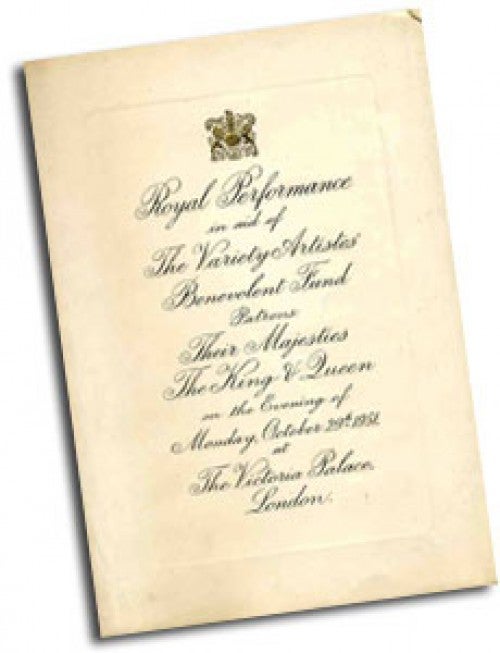 Royal Performance
in aid of
The Variety Artistes'
Benevolent Fund
Patrons
Their Majesties
The King & Queen
on the Evening of
Monday, October 29th 1951.
at
The Victoria Palace,
London.